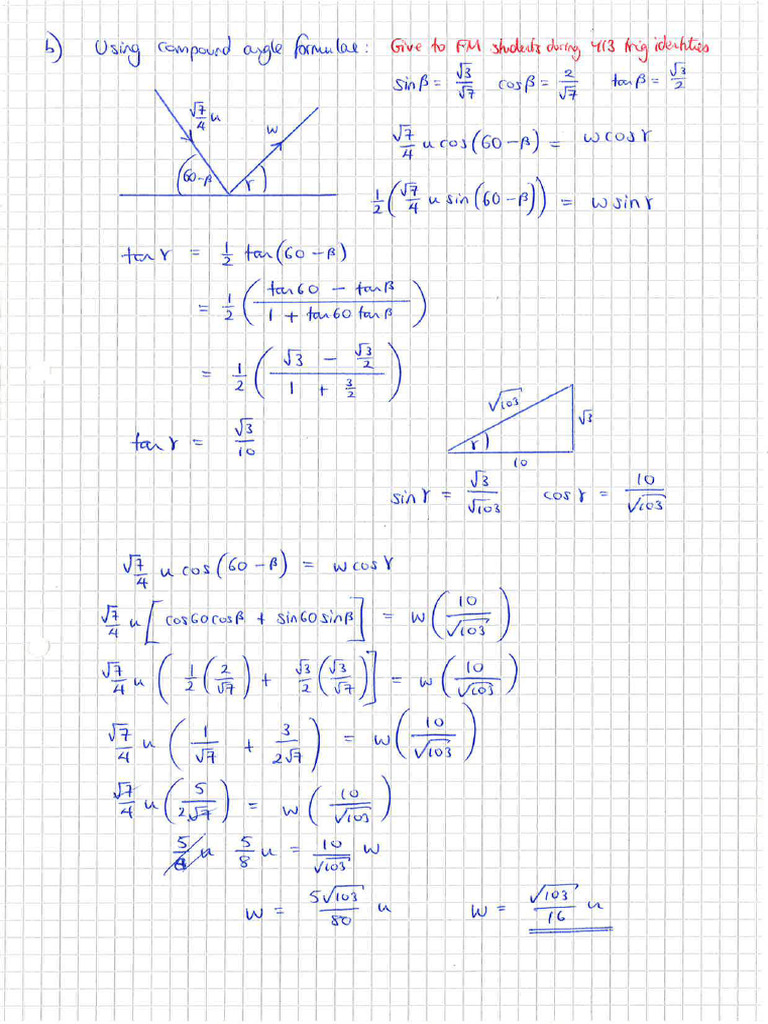 b) Using compound angle formulae: Give to FM students during Y13 trig identities
sinβ = √3/√7 cosβ = 2/√7 tanβ = √3/2
√7/4 u w
60-β γ
√7/4 u cos(60-β) = w cosγ
1/2 (√7/4 u sin(60-β)) = w sinγ
tanγ = 1/2 tan(60-β)
= 1/2 ((tan60 - tanβ)/(1 + tan60 tanβ))
= 1/2 ((√3 - √3/2)/(1 + 3/2))
tanγ = √3/10
√103 √3
γ
10
sinγ = √3/√103 cosγ = 10/√103
√7/4 u cos(60-β) = w cosγ
√7/4 u [cos60cosβ + sin60sinβ] = w(10/√103)
√7/4 u (1/2(2/√7) + √3/2(√3/√7)] = w(10/√103)
√7/4 u (1/√7 + 3/2√7) = w(10/√103)
√7/4 u (5/2√7) = w(10/√103)
5/8 u = 10/√103 w
w = 5√103/80 u w = √103/16 u